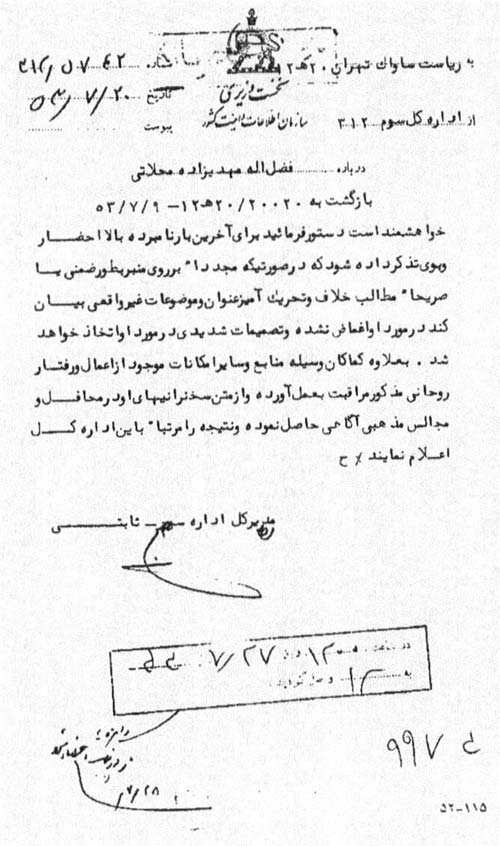 به ریاست ساواك تهران ۲۰هـ۲
شماره ۳۱۲/۵۷۴۲
نخست وزیری
تاریخ ۵۳/۷/۲۰
از اداره کل سوم ۳۱۲
سازمان اطلاعات و امنیت کشور
پیوست
درباره فضل اله مهدیزاده محلاتی
بازگشت به ۲۰/۲۰۰۲۰هـ۱۲-۵۳/۷/۹
خواهشمند است دستورفرمائید برای آخرین بار نامبرده بالا احضار
وبوی تذکر داده شود که درصورتیکه مجددا" برروی منبر بطورضمنی یا
صریحا" مطالب خلاف وتحریك آمیز عنوان وموضوعات غیرواقعی بیان
کند درمورد او اغماض نشده وتصمیمات شدیدی درمورد او اتخاذ خواهد
شد . بعلاوه کماکان وسیله منابع وسایر امکانات موجود از اعمال ورفتار
روحانی مذکور مراقبت بعمل آورده و ازمتن سخنرانیهای او درمحافل و
مجالس مذهبی آگاهی حاصل نموده ونتیجه را مرتبا" باین اداره کل
اعلام نمایند ٪ ح
مدیرکل اداره سوم ـ ثابتی
در ساعت ۱۲ روز ۷/۲۷
به ۱۲ واصل گردید
۶/۲۸
۹۹۷
۵۲-۱۱۵